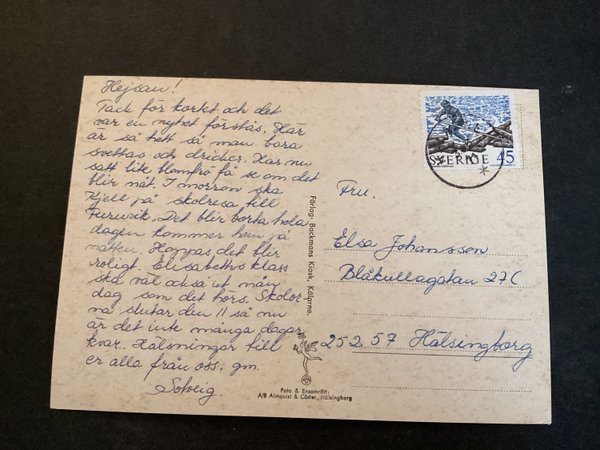 Hejsan!
Tack för kortet och det
var en nyhet förstås. Här
är så hett så man bara
svettas och dricker. Har nu
satt lite blomfrö få se om det
blir nåt. I morron ska
Kjell på skolresa till
Furuvik. Det blir borta hela
dagen kommer hem på
natten. Hoppas det blir
roligt. Elisabeths klass
ska väl också ut mån
dag som det hörs. Skolor
na slutar den 11 så nu
är det inte många dagar
kvar. Hälsningar till
er alla från oss. gm.
Solveig.
Förlag: Backmans Kiosk, Kälarne.
Foto & Ensamrätt:
A/B Almquist & Cöster, Hälsingborg
SVERIGE 45
Fru.
Elsa Johansson
Blåkullagatan 27C
252 57 Hälsingborg